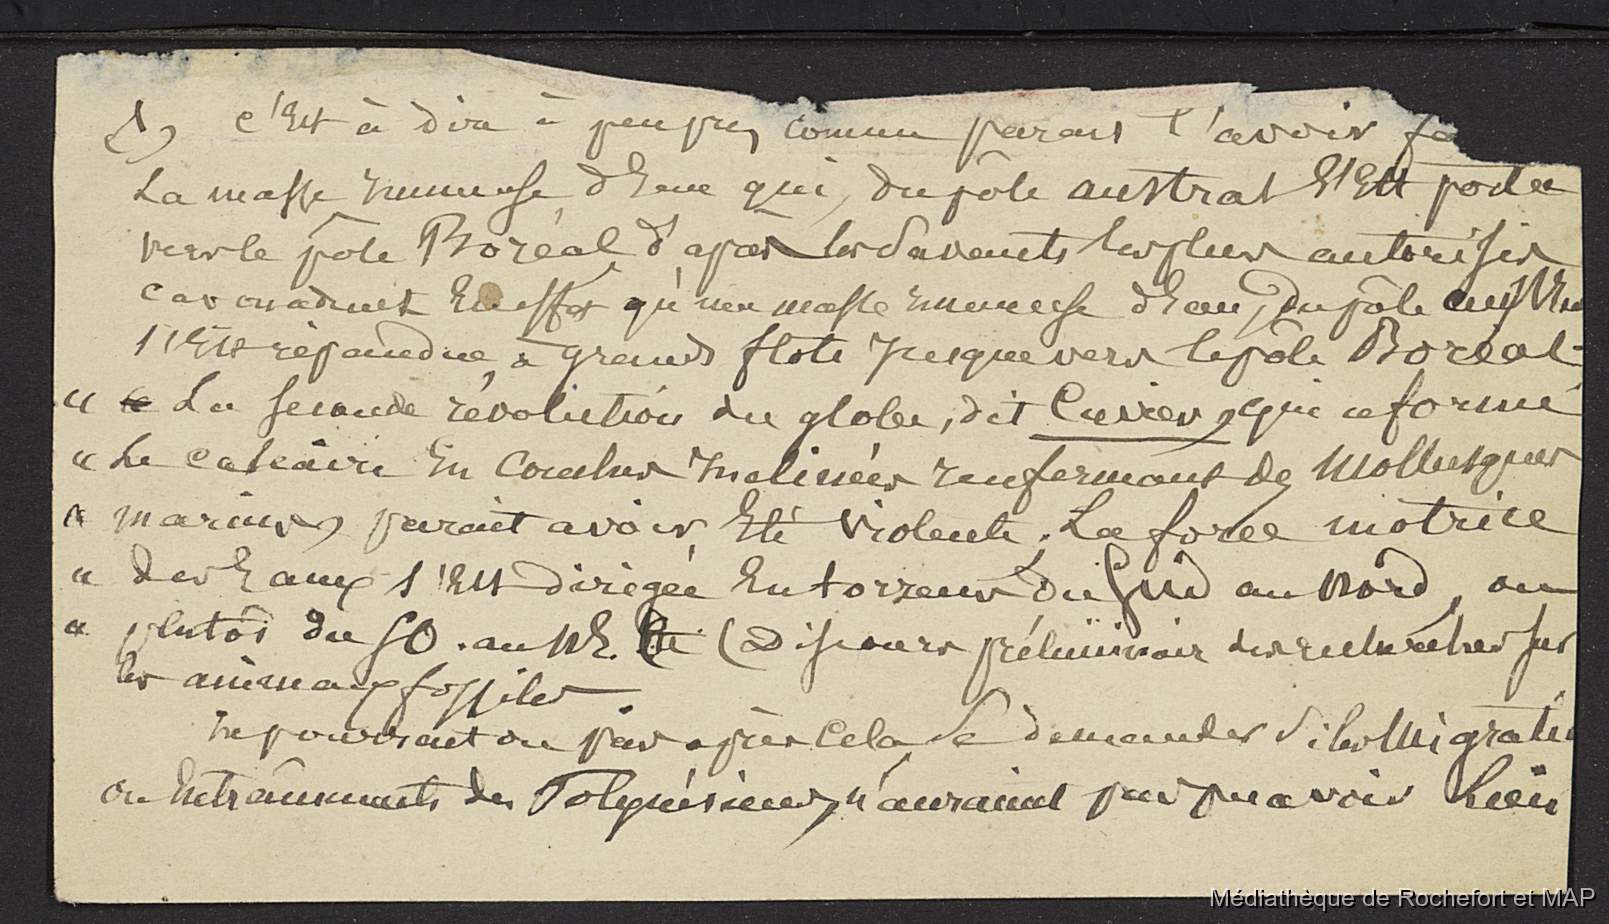 c'Est à dire à peu près comme parait l'avoir fa
La masse immense d'Eau qui, du pôle austral s'Est portée
vers le pôle Boréal d'après les savants les plus autorisés
car on admet En effet qu'une masse immense d'Eau, du pôle austral
s'Est répandue à grands flots jusque vers le pôle Boréal
" La seconde révolution du globe, dit Cuvier, qui a formé
" Le calcaire En couches inclinées renfermant des Mollusques
" marins, parait avoir Eté violente. La force motrice
" des Eaux s'Est dirigée En torrens du Sud au Nord, ou
" plutôt du SO. au NE. (Discours préliminaire des recherches sur
les animaux fossiles
ne pourrait on pas après cela se demander si les Migratio
ou Entraînements des Polynésiens, n'auraient pas pu avoir Lieu
Médiathèque de Rochefort et MAP